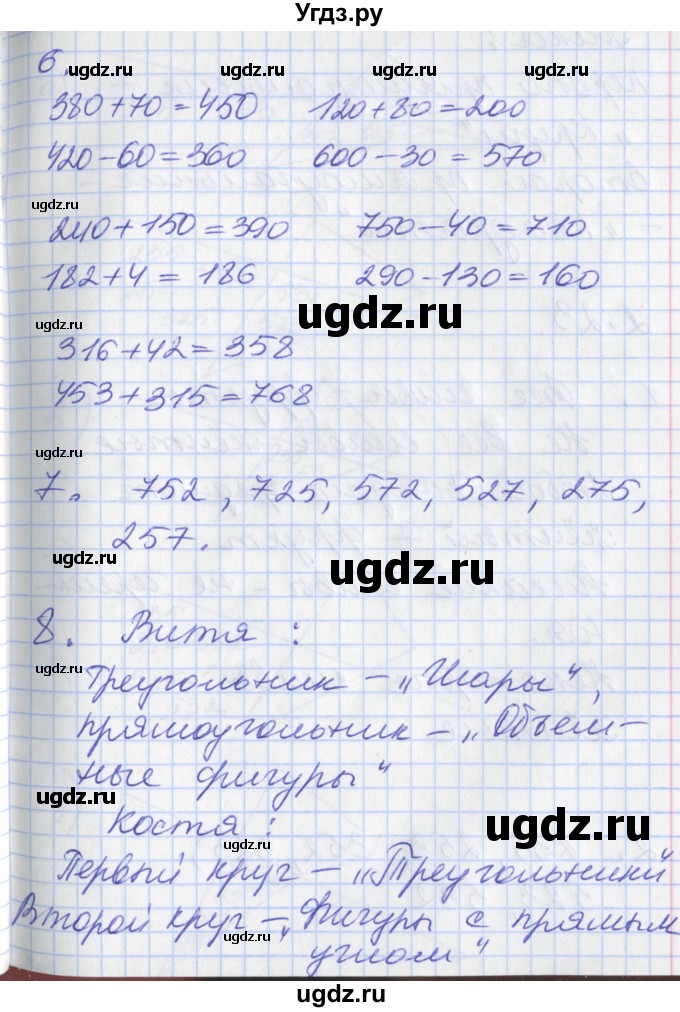 Угдз.ру
ugdz.ru ugdz.ru
6.
380+70=450 120+80=200
420-60=360 600-30=570
ugdz.ru
240+150=390 750-40=710
182+4=186 290-130=160
ugdz.ru
ugdz.ru
316+42=358
453+315=768
ugdz.ru
7. 752, 725, 572, 527, 275,
257.
ugdz.ru
8. Витя:
ugdz.ru
Треугольник - „Шары“,
прямоугольник - „Объем-
ные фигуры“
ugdz.ru
Костя:
ugdz.ru
Первый круг - „Треугольники
Второй круг - „Фигуры с прямым
ugdz.ru
углом“
ugdz.ru